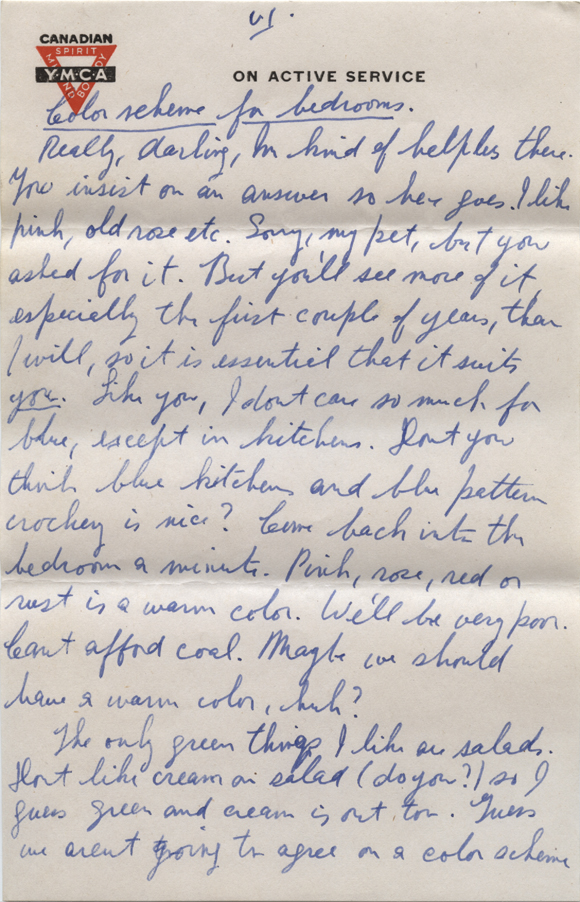 VI.
CANADIAN
SPIRIT
Y·M·C·A
MIND
BODY
ON ACTIVE SERVICE
Color scheme for bedrooms.
Really, darling, I'm kind of helpless there.
You insist on an answer so here goes. I like
pink, old rose etc. Sorry, my pet, but you
asked for it. But you'll see more of it,
especially the first couple of years, than
I will, so it is essential that it suits
you. Like you, I dont care so much for
blue, except in kitchens. Dont you
think blue kitchens and blue pattern
crockery is nice? Come back into the
bedroom a minute. Pink, rose, red or
rust is a warm color. We'll be very poor.
Cant afford coal. Maybe we should
have a warm color, huh?
The only green things I like are salads.
Dont like cream on salad (do you?) so I
guess green and cream is out, too. Guess
we arent going to agree on a color scheme